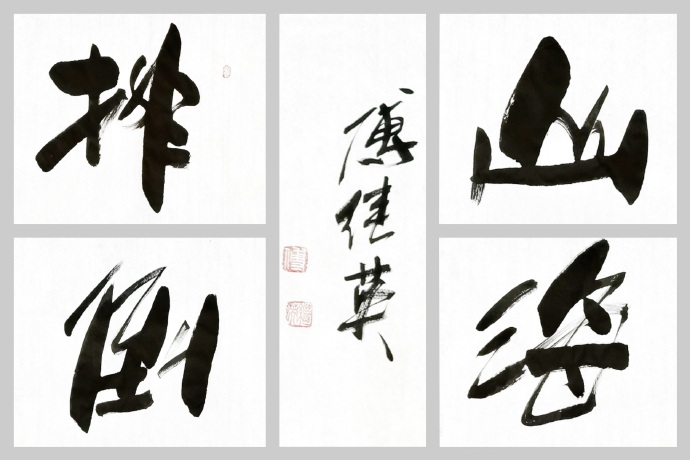 排山
倒海
傅佳英